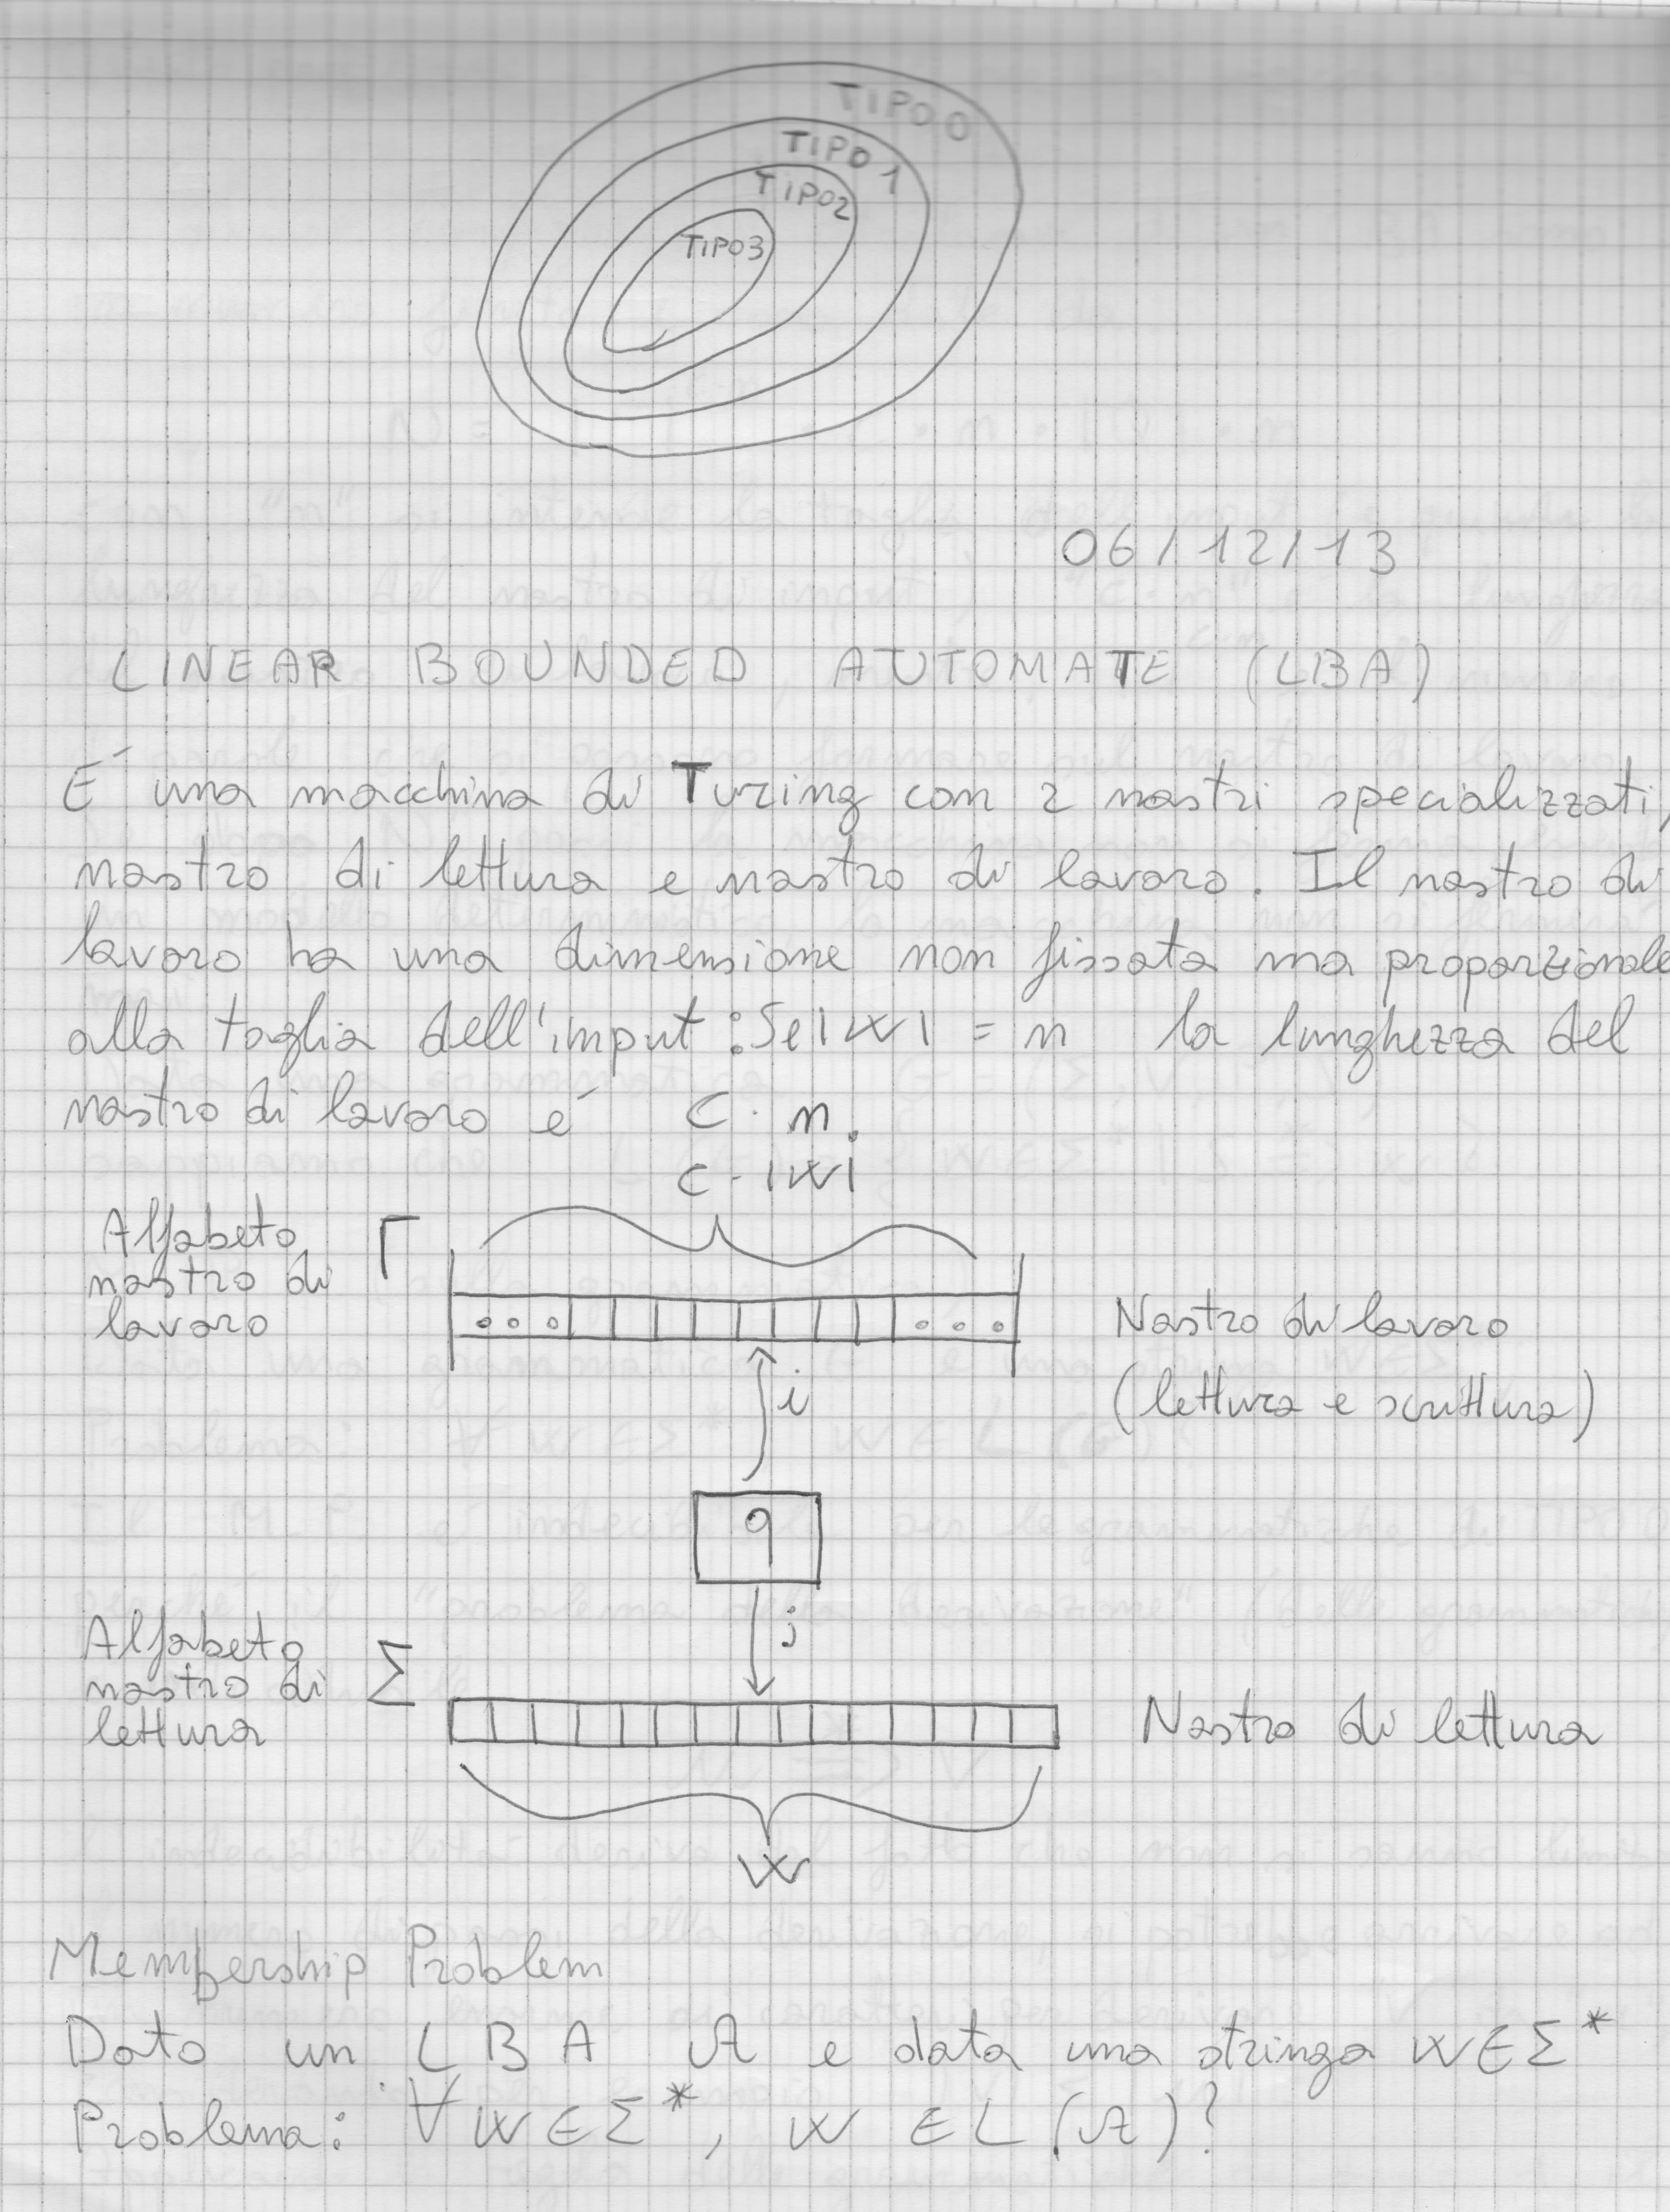 TIPO 0
TIPO 1
TIPO2
TIPO3
06/12/13
LINEAR BOUNDED AUTOMATE (LBA)
É una macchina di Turing con 2 nastri specializzati,
nastro di lettura e nastro di lavoro. Il nastro di
lavoro ha una dimensione non fissata ma proporzionale
alla taglia dell'input: Se |W| = n la lunghezza del
nastro di lavoro é C · n.
C · |W|
Alfabeto
nastro di
lavoro
Γ
Nastro di lavoro
(lettura e scrittura)
i
q
j
Alfabeto
nastro di
lettura
Σ
Nastro di lettura
W
Membership Problem
Dato un LBA A e data una stringa W∈Σ*
Problema: ∀W∈Σ*, W ∈ L(A)?